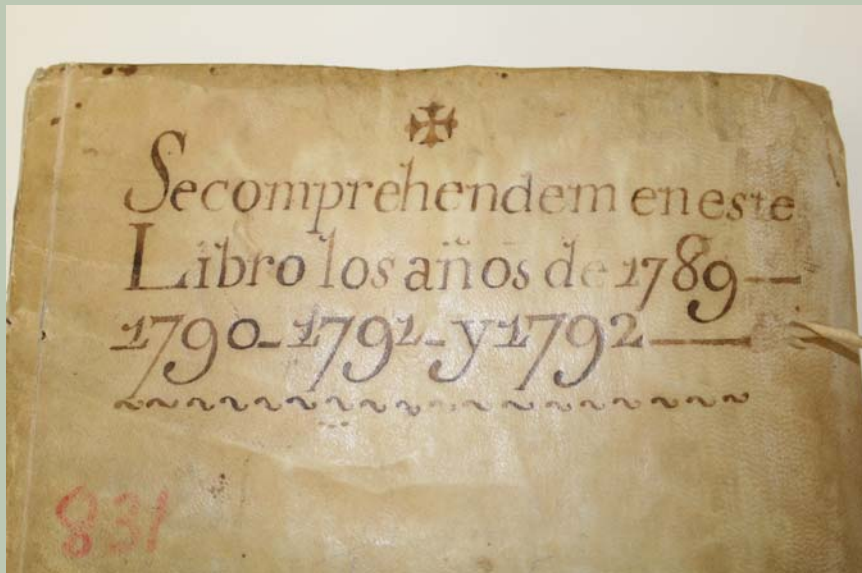 ✠
Secomprehendem en este
Libro los años de 1789—
1790-1791-y 1792——
831